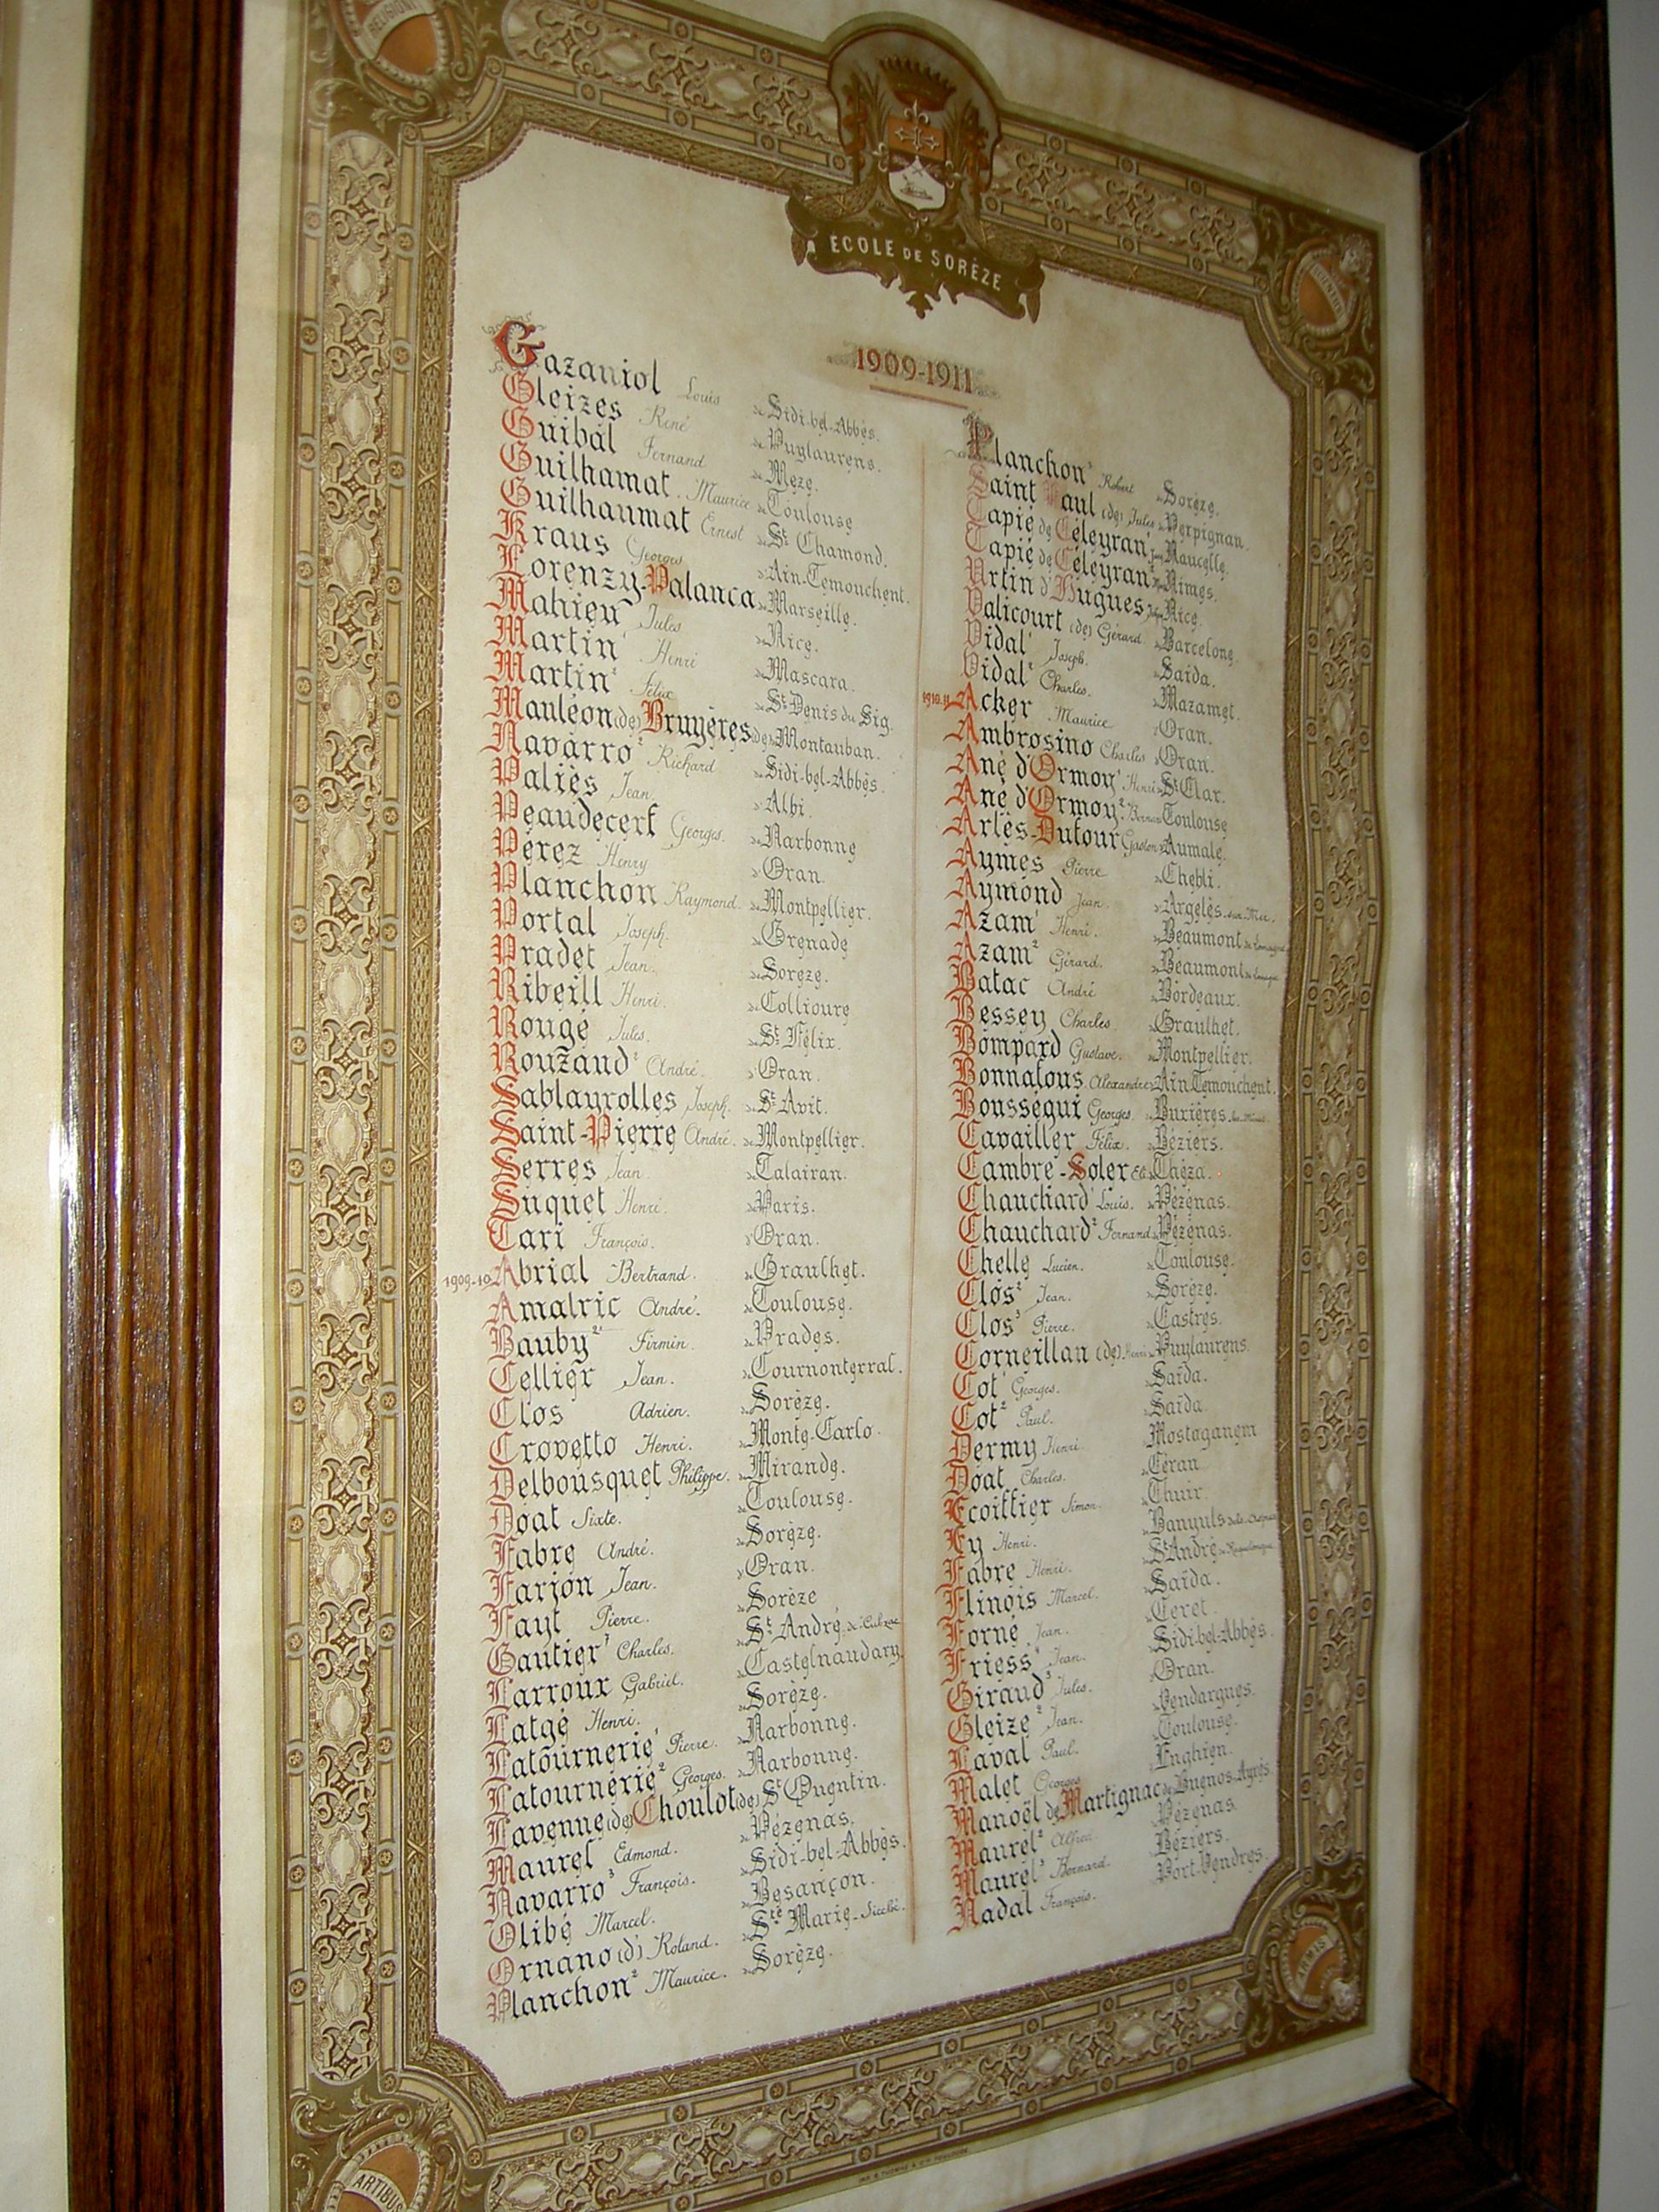 RELIGIONI
ECOLE DE SORÈZE
1909-1911
Gazaniol Louis de Sidi-bel-Abbès.
Gleizes René de Puylaurens.
Guibal Fernand de Mèze.
Guilhamat Maurice de Toulouse
Guilhaumat Ernest de St Chamond.
Kraus Georges d'Ain-Temouchent.
Lorenzy-Palanca de Marseille.
Mahieu Jules de Nice.
Martin1 Henri de Mascara.
Martin2 Félix de St Denis du Sig.
Mauléon (de) Bruyères (de) de Montauban.
Navarro2 Richard de Sidi-bel-Abbès.
Paliès Jean d'Albi.
Peaudecerf Georges. de Narbonne
Pérez Henry d'Oran.
Planchon Raymond. de Montpellier.
Portal Joseph. de Grenade
Pradet Jean. de Sorèze.
Ribeill Henri. de Collioure
Rougé Jules. de St Félix.
Rouzaud2 André. d'Oran.
Sablayrolles Joseph. de St Avit.
Saint-Pierre André. de Montpellier.
Serres Jean. de Talairan.
Suquet Henri. de Paris.
Tari François. d'Oran.
1909-10 Abrial Bertrand. de Graulhet.
Amalric André. de Toulouse.
Bauby2 Firmin. de Prades.
Cellier Jean. de Cournonterral.
Clos Adrien. de Sorèze.
Crovetto Henri. de Monte-Carlo.
Delbousquet Philippe. de Mirande.
Doat Sixte. de Toulouse.
Fabre André. de Sorèze.
Farjon Jean. d'Oran.
Fayt Pierre. de Sorèze
Gautier1 Charles. de St André de Cubzac
Larroux Gabriel. de Castelnaudary.
Latgé Henri. de Sorèze.
Latournerie1 Pierre. de Narbonne.
Latournerie2 Georges. de Narbonne.
Lavenne (de) Choulot (de) de St Quentin.
Maurel Edmond. de Pézenas.
Navarro3 François. de Sidi-bel-Abbès.
Olibé Marcel. de Besançon.
Ornano (d') Roland. de Ste Marie-Siché.
Planchon2 Maurice. de Sorèze.
Planchon3 Robert de Sorèze.
Saint Paul (de) Jules de Perpignan.
Tapié de Céleyran1 de Naucelle.
Tapié de Céleyran2 de Nimes.
Urtin d'Hugues de Nice.
Valicourt (de) Gérard. de Barcelone.
Vidal1 Joseph. de Saida.
Vidal2 Charles. de Mazamet.
1910-11 Acker Maurice d'Oran.
Ambrosino Charles d'Oran.
Ané d'Ormoy1 Henri de St Clar.
Ané d'Ormoy2 de Toulouse
Arlès-Dufour Gaston d'Aumale.
Aymes Pierre de Chebli.
Aymond Jean. d'Argelès-sur-Mer.
Azam1 Henri. de Beaumont de Lomagne
Azam2 Gérard. de Beaumont de Lomagne
Batac André de Bordeaux.
Bessey Charles de Graulhet.
Bompard Gustave. de Montpellier.
Bonnafous Alexandre d'Ain Temouchent.
Bousségui Georges de Buxières les Mines
Cavailler Félix. de Béziers.
Cambre-Soler de Théza.
Chauchard1 Louis. de Pézenas.
Chauchard2 Fernand de Pézenas.
Chelle Lucien. de Toulouse.
Clos2 Jean. de Sorèze.
Clos3 Pierre. de Castres.
Corneillan (de) Henri de Puylaurens.
Cot1 Georges. de Saïda.
Cot2 Paul. de Saïda.
Dermy Henri de Mostaganem
Doat Charles. de Céran
Ecoiffier Simon. de Thuir.
Ey Henri. de Banyuls
Fabre Henri. de St André de Roquelongue
Flinois Marcel. de Saïda.
Forné Jean. de Ceret.
Friess4 Jean. de Sidi-bel-Abbès.
Giraud3 Jules. d'Oran.
Gleize2 Jean. de Vendargues.
Laval Paul. de Toulouse.
Malet Georges d'Enghien.
Manoël de Martignac de Buenos-Ayres.
Maurel2 Alfred. de Pézenas.
Maurel3 Bernard. de Béziers.
Nadal François. de Port-Vendres.
ARTIBUS
ARMIS